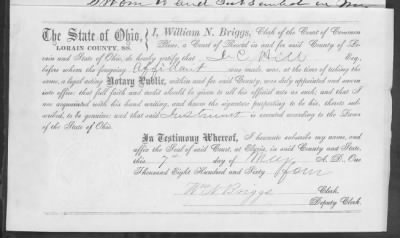 Sworn to and Subscribed in my
The State of Ohio,
LORAIN COUNTY, SS.
I, William N. Briggs, Clerk of the Court of Common
Pleas, a Court of Record in and for said County of Lo-
rain and State of Ohio, do hereby certify that J. C. Hill Esq.,
before whom the foregoing Affidavit was made, was, at the time of taking the
same, a legal acting Notary Public, within and for said County, was duly appointed and sworn
into office; that full faith and credit should be given to all his official acts as such; and that I
am acquainted with his hand writing, and know the signature purporting to be his, thereto sub-
scribed, to be genuine; and that said Instrument is executed according to the Laws
of the State of Ohio.
In Testimony Whereof, I hereunto subscribe my name, and
affix the Seal of said Court, at Elyria, in said County and State,
this 7th day of May A. D. One
Thousand Eight Hundred and Sixty four
Wm N Briggs Clerk.
Deputy Clerk.